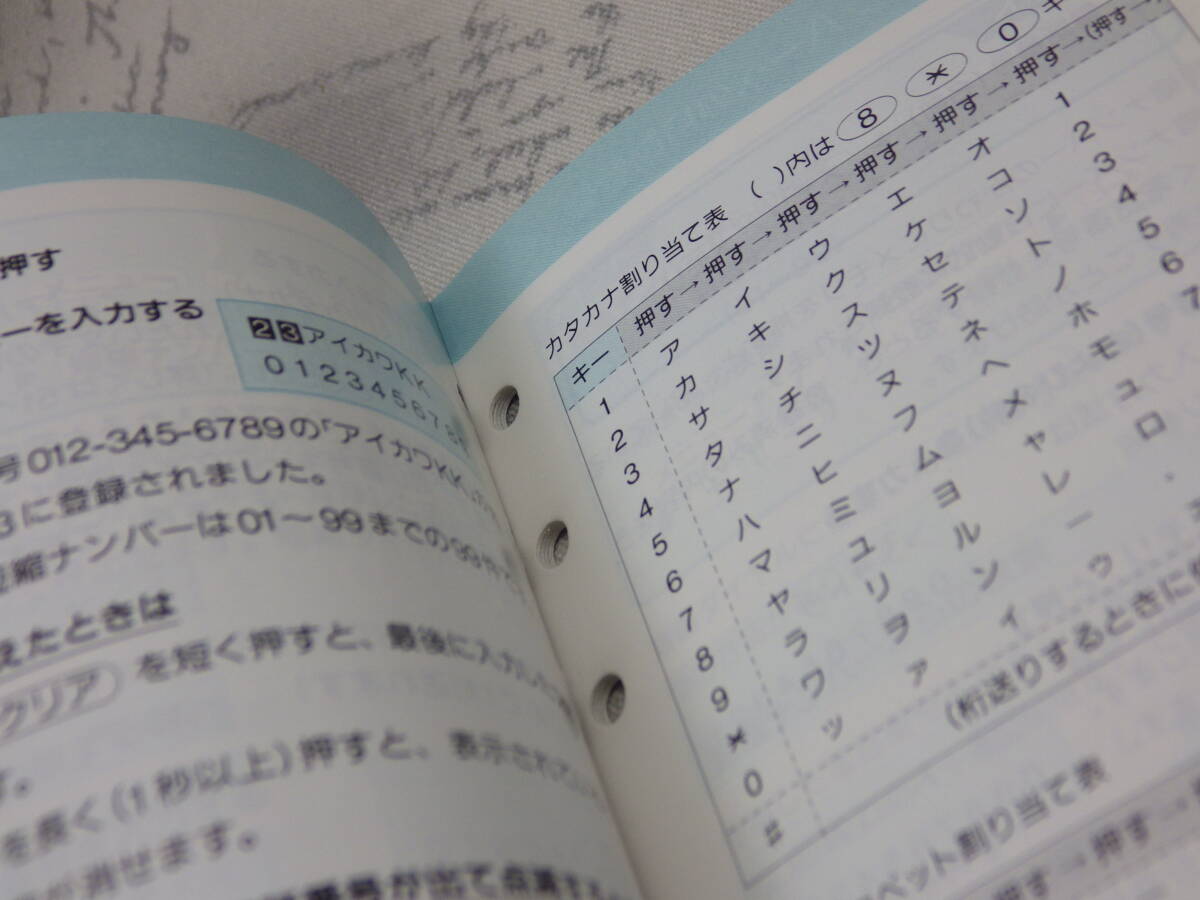 押す
ーを入力する
23アイカワK.K.
012345678
号012-345-6789の「アイカワK.K.」
3に登録されました。
短縮ナンバーは01～99までの99
えたときは
クリア を短く押すと、最後に入力
す。
を長く(1秒以上)押すと、表示されて
が消せます。
番号が出て点滅する
カタカナ割り当て表 ( )内は 8 * 0 キ
キー 押す→押す→押す→押す→押す→(押す→
1 ア イ ウ エ オ 1
2 カ キ ク ケ コ 2
3 サ シ ス セ ソ 3
4 タ チ ツ テ ト 4
5 ナ ニ ヌ ネ ノ 5
6 ハ ヒ フ ヘ ホ 6
7 マ ミ ム メ モ 7
8 ヤ ユ ヨ ャ ュ
9 ラ リ ル レ ロ
* ワ ヲ ン ー
0 ッ ァ ィ ゥ
# (桁送りするときに使
ベット割り当て表
押す→押す→